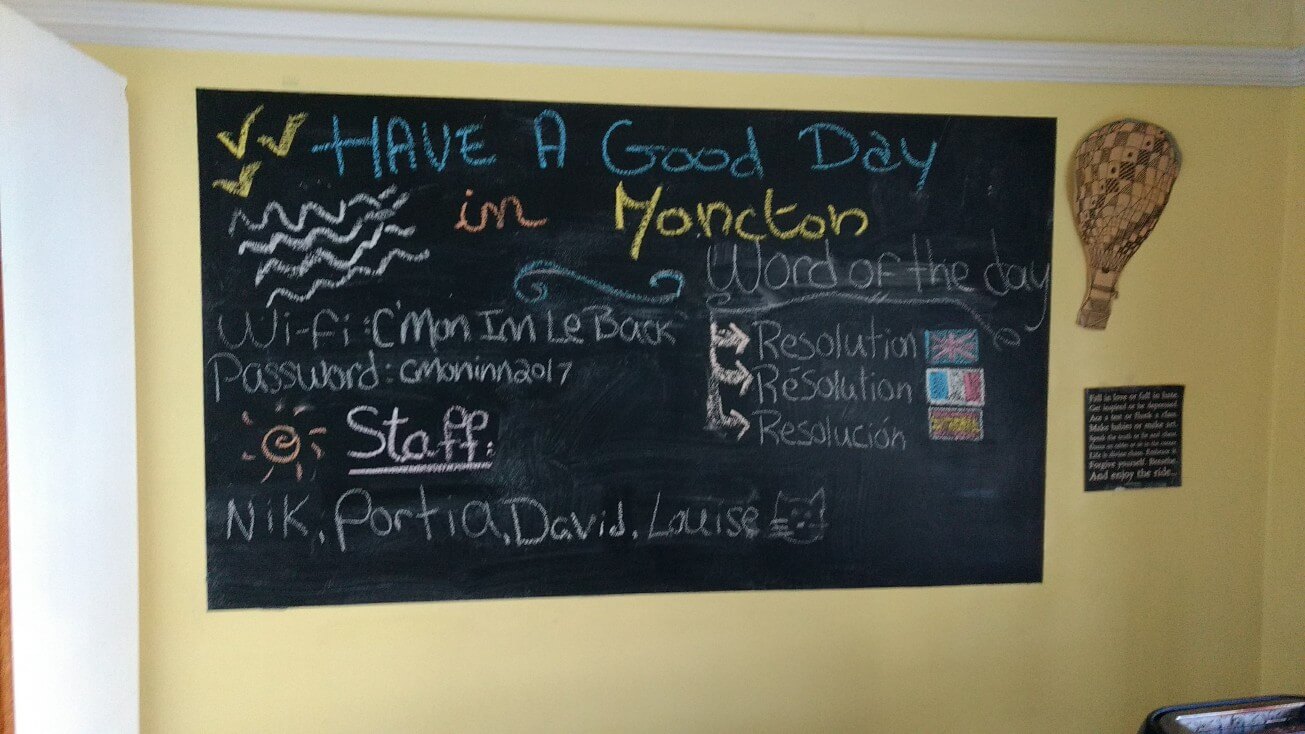 HAVE A Good Day
in Moncton
Word of the day
Wi-Fi: C'Mon Im Le Back
Password: cmoninn2017
Resolution
Résolution
Resolución
Staff:
Nik, Portia, David, Louise
Fall in love or fall in hate.
Get inspired or be depressed.
Ace a test or flunk a class.
Make babies or make art.
Speak the truth or lie and cheat.
Dance on tables or sit in the corner.
Life is divine chaos. Embrace it.
Forgive yourself. Breathe.
And enjoy the ride...